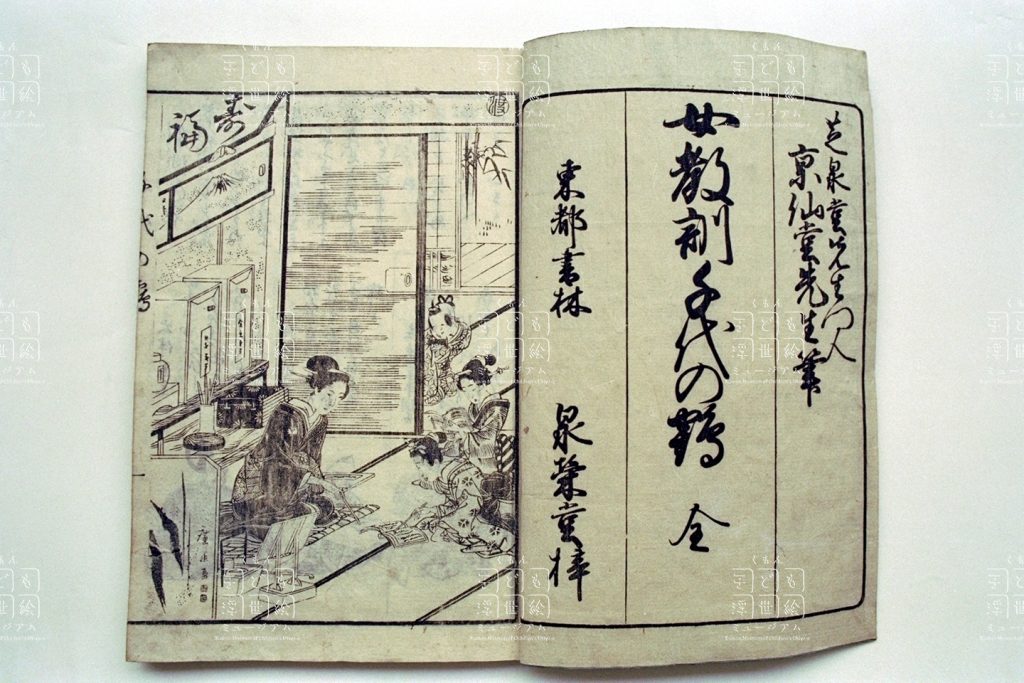 芝泉堂先生門人
京仙堂先生筆
女教訓千代の鶴 全
東都書林 泉榮堂梓
寿
福
千代の鶴
くもん
子ども
浮世絵
ミュージアム